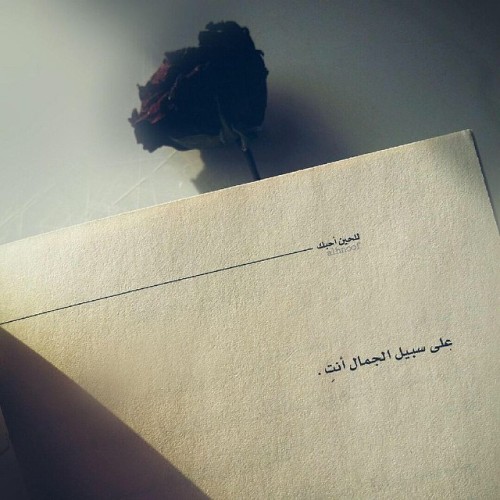 للحين أحبك
alhnoof
على سبيل الجمال أنتِ .